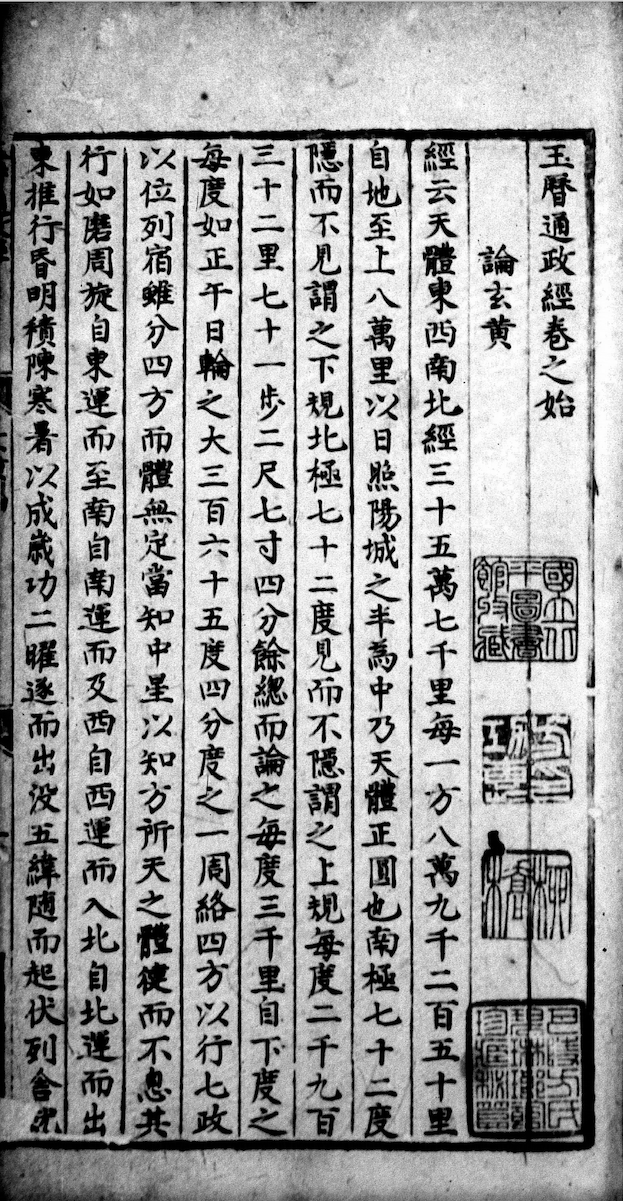 玉曆通政經卷之始
論玄黄
經云天體東西南北經三十五萬七千里每一方八萬九千二百五十里
自地至上八萬里以日照陽城之半為中乃天體正圓也南極七十二度
隱而不見謂之下規北極七十二度見而不隱謂之上規每度二千九百
三十二里七十一步二尺七寸四分餘總而論之每度三千里自下度之
每度如正午日輪之大三百六十五度四分度之一周絡四方以行七政
以位列宿雖分四方而體無定當知中星以知方所天之體健而不息其
行如磨周旋自東運而至南自南運而及西自西運而入北自北運而出
東推行昏明積陳寒暑以成歲功二曜逐而出没五緯随而起伏列舍
國立北
平圖書
館收藏